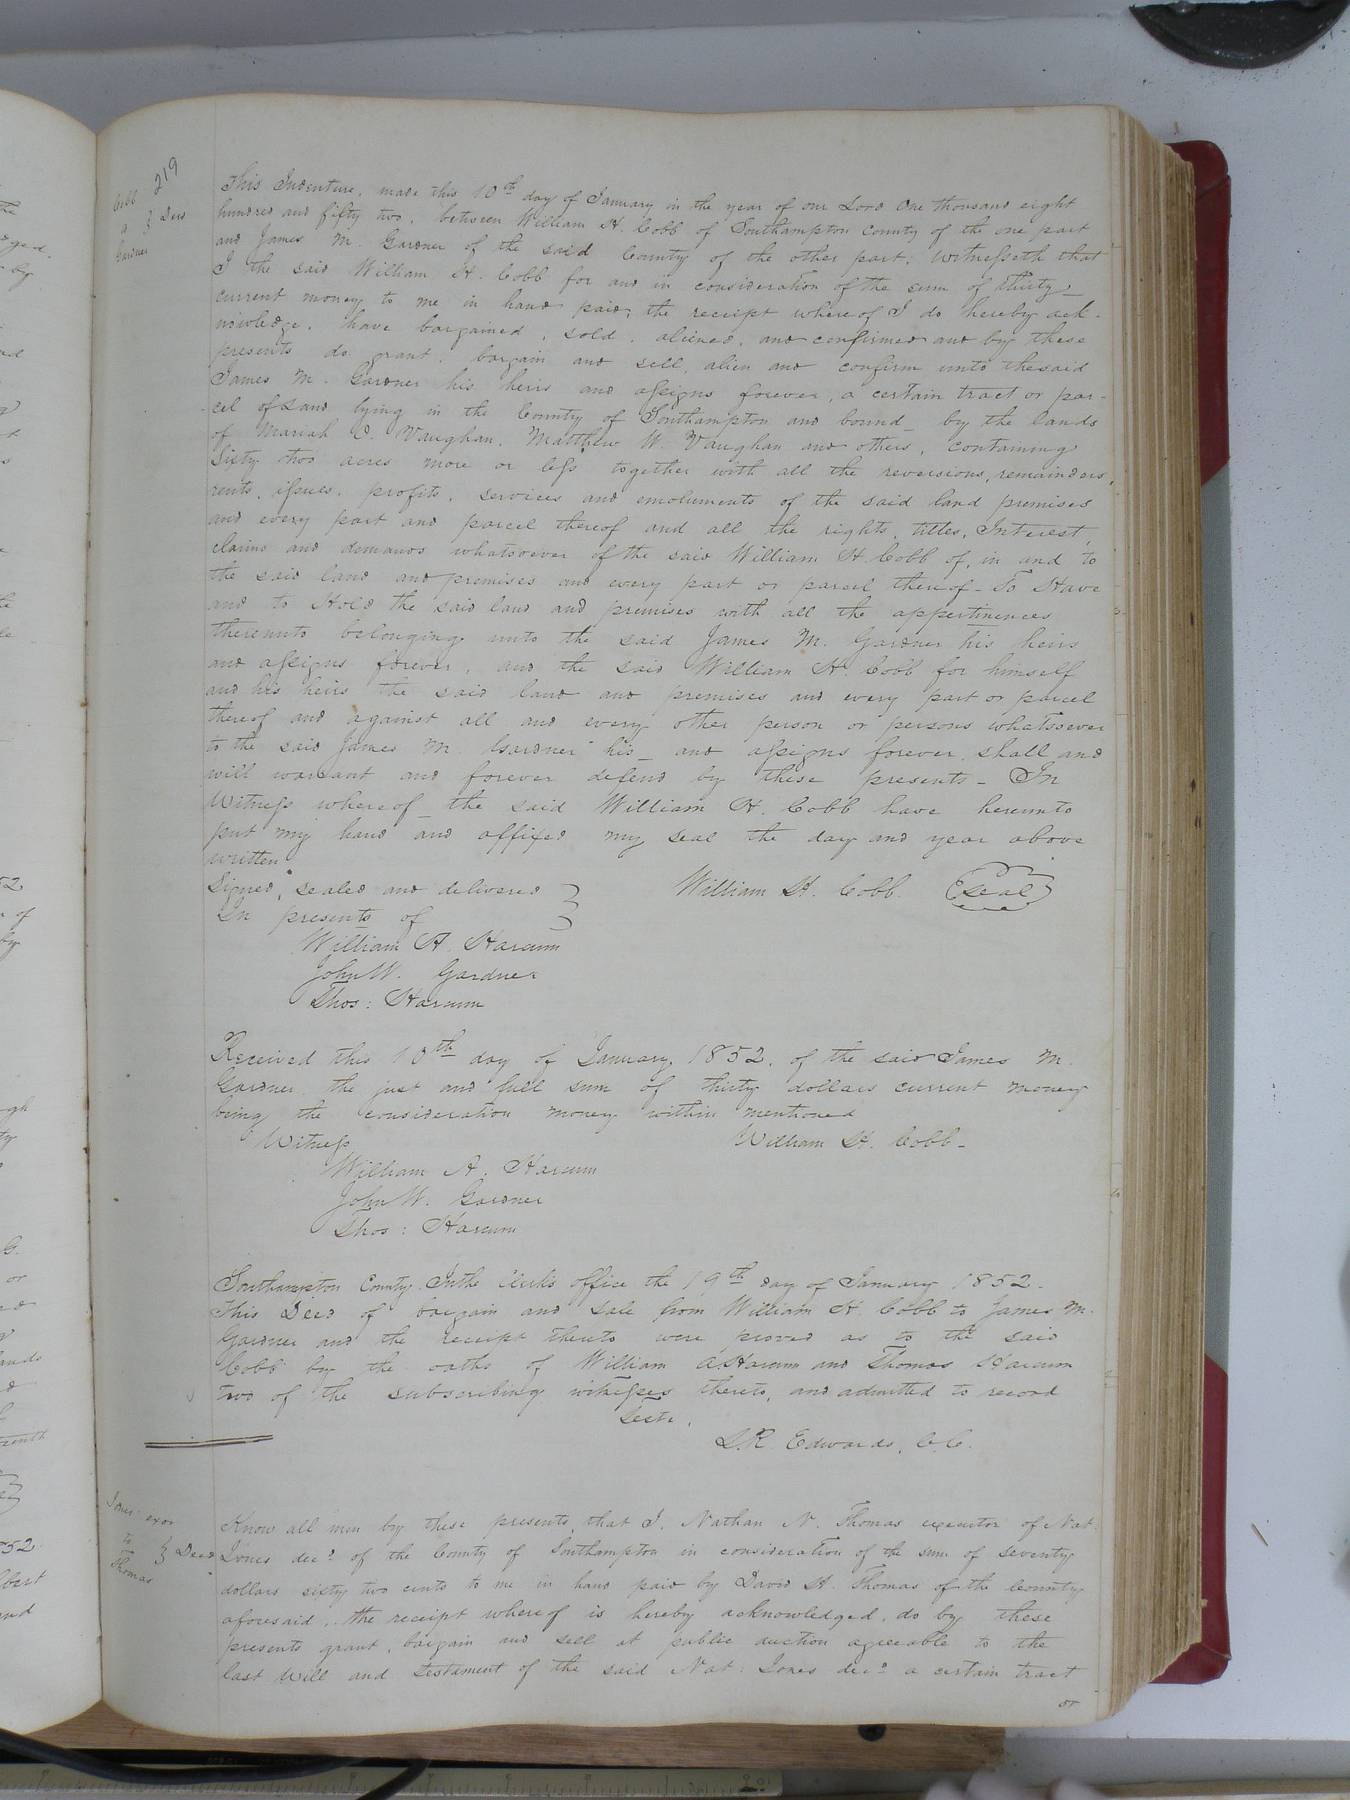 219
Cobb
to } Deed
Gardner
This Indenture, made this 10th day of January in the year of our Lord One thousand eight
hundred and fifty two, between William H. Cobb of Southampton County of the one part
and James M. Gardner of the said County of the other part, witnesseth that
I the said William H. Cobb for and in consideration of the sum of thirty
current money to me in hand paid, the receipt whereof I do hereby ack-
nowledge, have bargained, sold, aliened, and confirmed and by these
presents do grant, bargain and sell, alien and confirm unto the said
James M. Gardner his heirs and assigns forever, a certain tract or par-
cel of Land lying in the County of Southampton and bound by the lands
of Mariah Vaughan, Matthew W. Vaughan and others, containing
Sixty two acres more or less together with all the reversions, remainders,
rents, issues, profits, services and emoluments of the said land premises
and every part and parcel thereof and all the rights, titles, Interest,
claims and demands whatsoever of the said William H. Cobb of, in and to
the said land and premises and every part or parcel thereof - To Have
and to Hold the said land and premises with all the appertinences
thereunto belonging unto the said James M. Gardner his heirs
and assigns forever, and the said William H. Cobb for himself
and his heirs the said land and premises and every part or parcel
thereof and against all and every other person or persons whatsoever
to the said James M. Gardner his _ and assigns forever shall and
will warrant and forever defend by these presents - In
Witness whereof the said William H. Cobb have hereunto
put my hand and affixed my seal the day and year above
written
Signed, sealed and delivered } William H. Cobb. (Seal)
In presents of
William A. Harcum
John W. Gardner
Thos: Harcum
Received this 10th day of January, 1852, of the said James M.
Gardner the just and full sum of thirty dollars current money
being the consideration money within mentioned
Witness William H. Cobb -
William A. Harcum
John W. Gardner
Thos: Harcum
Southampton County In the Clerk's office the 19th day of January 1852.
This Deed of bargain and sale from William H. Cobb to James M.
Gardner and the receipt thereto were proved as to the said
Cobb by the oaths of William A Harcum and Thomas Harcum
two of the subscribing witnesses thereto, and admitted to record
Teste,
L.R. Edwards, C.C.
Jones' exor
to } Deed
Thomas
Know all men by these presents, that I, Nathan N. Thomas executor of Nat:
Jones decd. of the County of Southampton in consideration of the sum of seventy
dollars sixty two cents to me in hand paid by David H. Thomas of the County
aforesaid, the receipt whereof is hereby acknowledged, do by these
presents grant, bargain and sell at public auction agreeable to the
last Will and testament of the said Nat: Jones decd. a certain tract
or